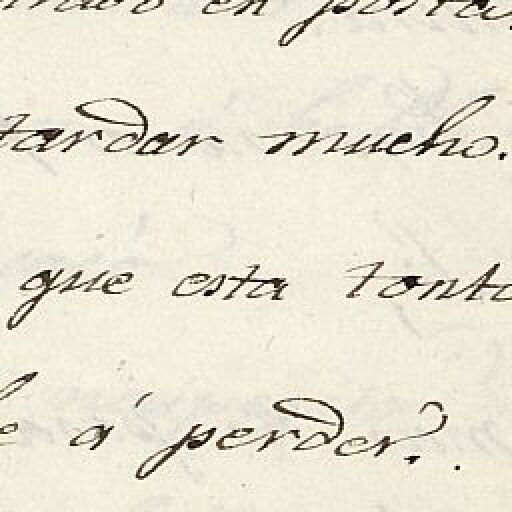 en
tardar mucho.
que esta tonto
á perder?.